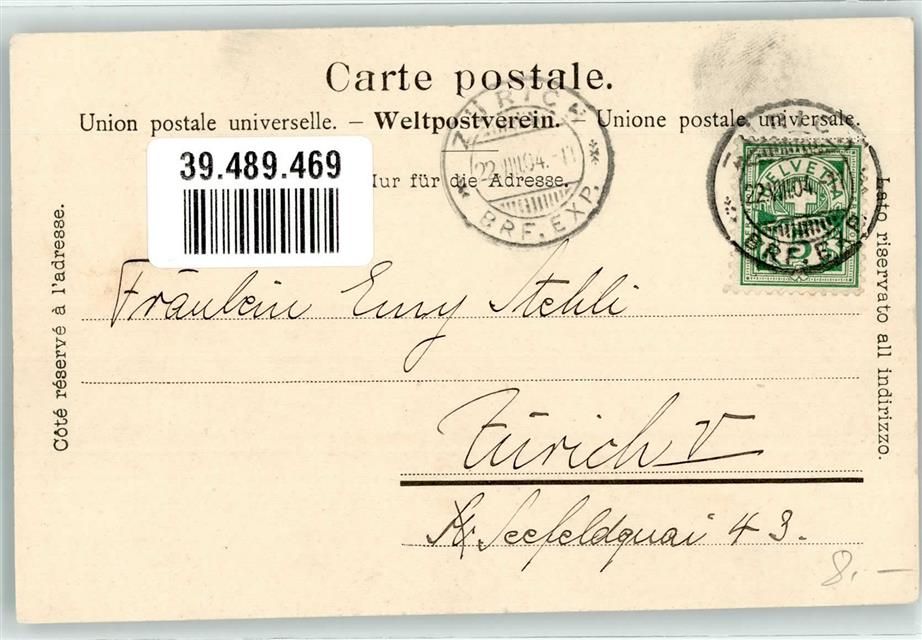 Carte postale.
Union postale universelle. – Weltpostverein. – Unione postale universale.
39.489.469
Nur für die Adresse.
ZÜRICH
22.VIII.04.-11
BRF. EXP.
ZÜRICH
22.VIII.04
BRF. EXP.
HELVETIA
5
Côté réservé à l'adresse.
Lato riservato all indirizzo.
Fräulein Emy Stehli
Zürich V
Seefeldquai 43.
8.–